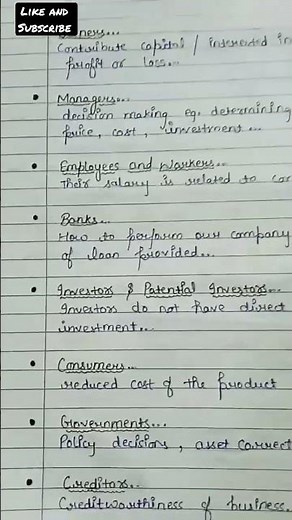 LIKE AND
SUBSCRIBE
Contribute capital / interested in
profit or loss...
Managers...
decision making eg. determining
price, cost, investment...
Employees and workers...
Their salary is related to
Banks...
How to perform our company
of loan provided...
Investors & Potential Investors...
Investors do not have direct
investment...
Consumers...
reduced cost of the product
Governments...
Policy decisions, asset correct
Creditors...
Creditworthiness of business.